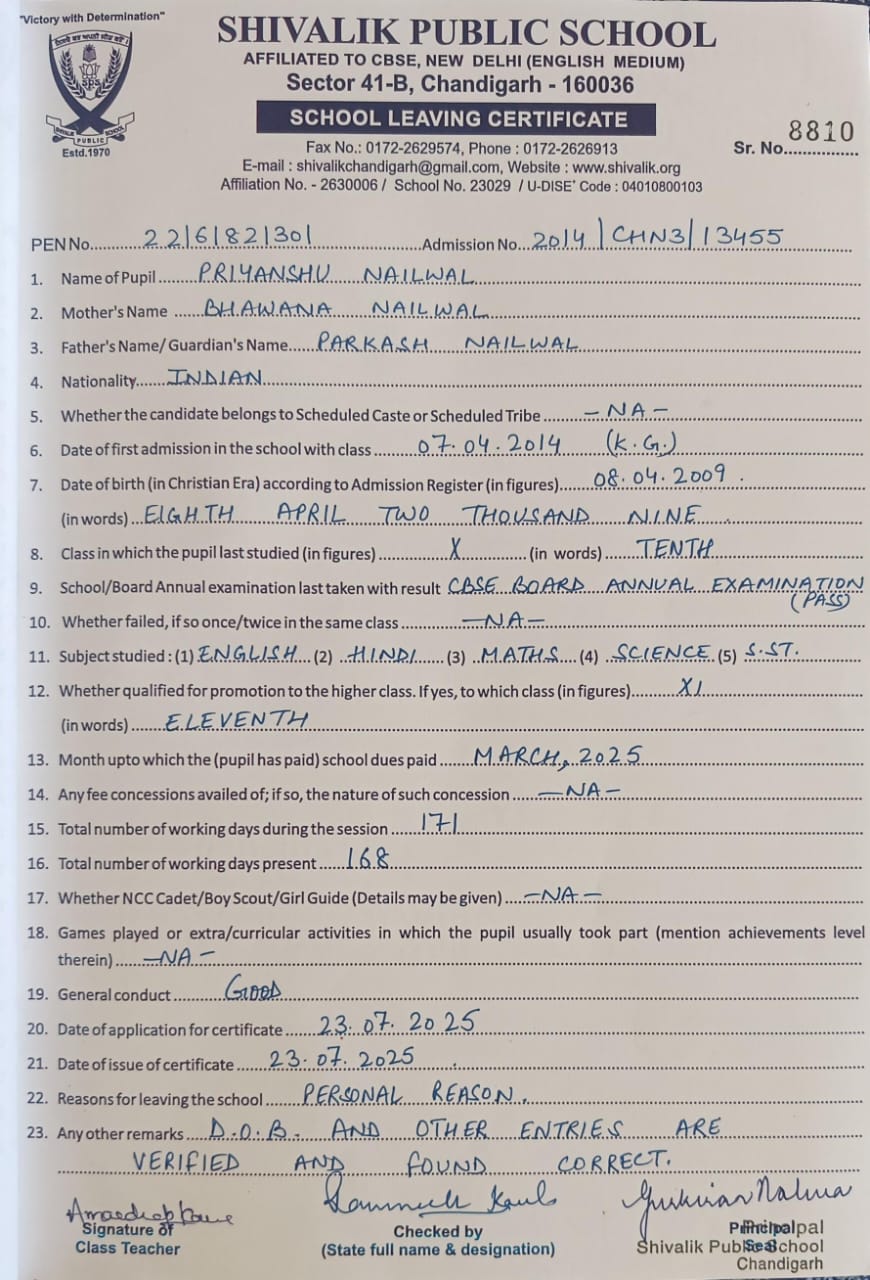 "Victory with Determination"
SHIVALIK PUBLIC SCHOOL
AFFILIATED TO CBSE, NEW DELHI (ENGLISH MEDIUM)
Sector 41-B, Chandigarh - 160036
SCHOOL LEAVING CERTIFICATE
SPS
SHIVALIK PUBLIC SCHOOL
Estd.1970
Fax No.: 0172-2629574, Phone : 0172-2626913
Sr. No. 8810
E-mail : shivalikchandigarh@gmail.com, Website : www.shivalik.org
Affiliation No. - 2630006 / School No. 23029 / U-DISE' Code : 04010800103
PEN No. 22161821301 Admission No. 2014/CHN3/13455
1. Name of Pupil PRIYANSHU NAILWAL
2. Mother's Name BHAWANA NAILWAL
3. Father's Name/ Guardian's Name PARKASH NAILWAL
4. Nationality INDIAN
5. Whether the candidate belongs to Scheduled Caste or Scheduled Tribe - NA -
6. Date of first admission in the school with class 07.04.2014 (K.G.)
7. Date of birth (in Christian Era) according to Admission Register (in figures) 08.04.2009.
(in words) EIGHTH APRIL TWO THOUSAND NINE
8. Class in which the pupil last studied (in figures) X (in words) TENTH
9. School/Board Annual examination last taken with result CBSE BOARD ANNUAL EXAMINATION
(PASS)
10. Whether failed, if so once/twice in the same class -NA-
11. Subject studied : (1) ENGLISH (2) HINDI (3) MATHS (4) SCIENCE (5) S.ST.
12. Whether qualified for promotion to the higher class. If yes, to which class (in figures) XI
(in words) ELEVENTH
13. Month upto which the (pupil has paid) school dues paid MARCH, 2025
14. Any fee concessions availed of; if so, the nature of such concession -NA-
15. Total number of working days during the session 171
16. Total number of working days present 168
17. Whether NCC Cadet/Boy Scout/Girl Guide (Details may be given) -NA-
18. Games played or extra/curricular activities in which the pupil usually took part (mention achievements level
therein) -NA-
19. General conduct GOOD
20. Date of application for certificate 23.07.2025
21. Date of issue of certificate 23.07.2025
22. Reasons for leaving the school PERSONAL REASON.
23. Any other remarks D.O.B. AND OTHER ENTRIES ARE
VERIFIED AND FOUND CORRECT.
Signature of
Class Teacher
Checked by
(State full name & designation)
Principal
Seal
Principal
Shivalik Public School
Chandigarh